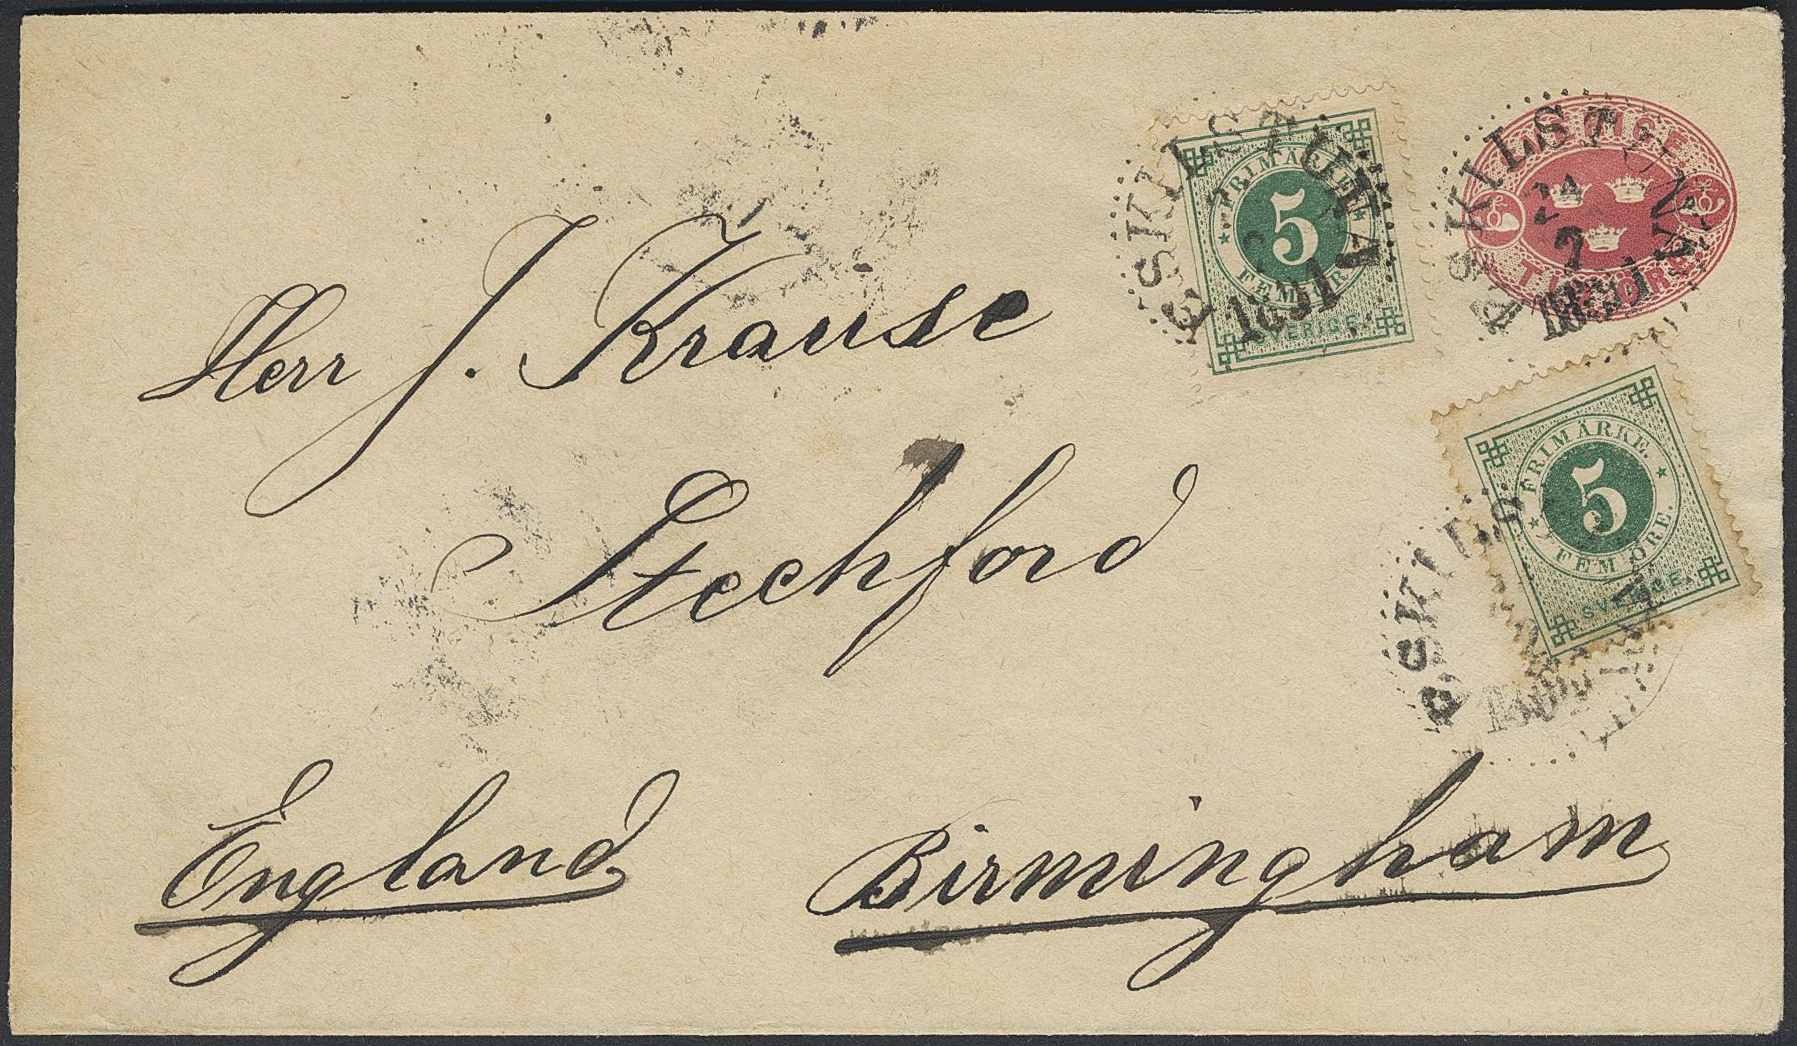 ESKILSTUNA
1891
FRIMÄRKE.
5
FEM ÖRE.
SVERIGE.
ESKILSTUNA
24
7
1891
SVERIGE
TIO ÖRE
Herr J. Krause
FRIMÄRKE.
5
FEM ÖRE.
SVERIGE.
ESKILSTUNA
Stechford
England
Birmingham